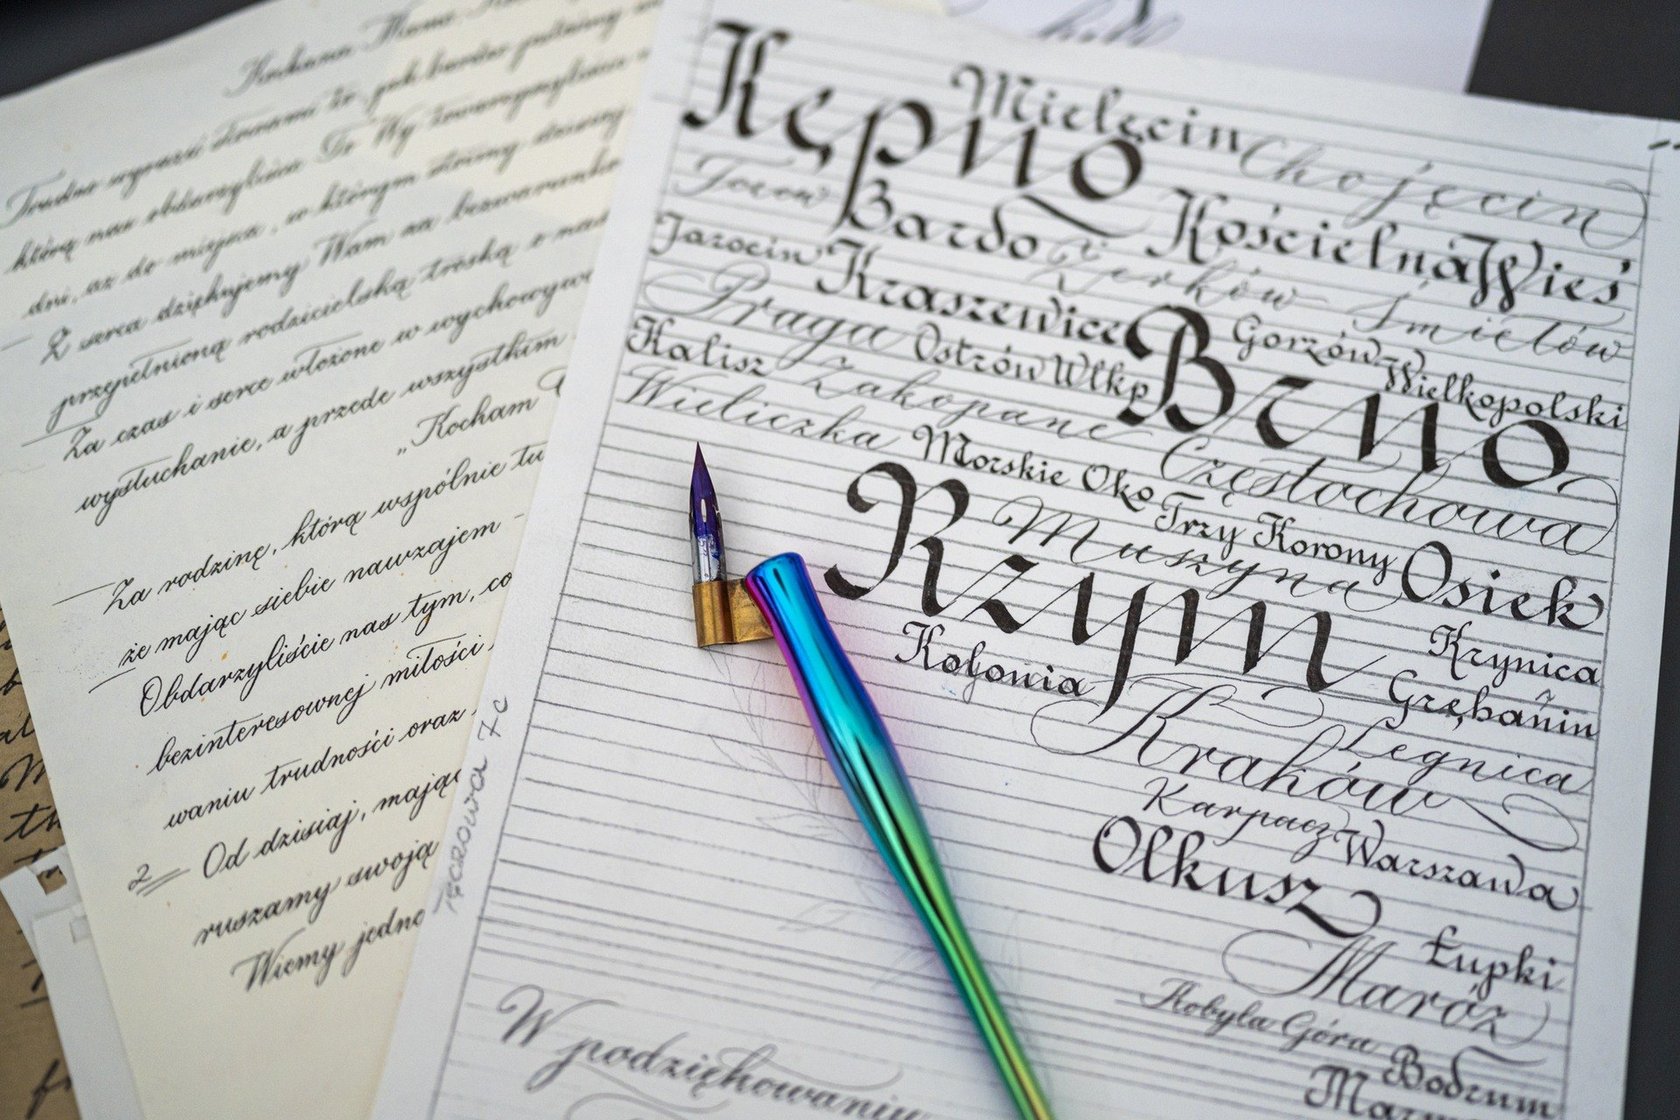 Kochana Mamo
Trudno wyrazić słowami to, jak bardzo jesteśmy
którą nas obdarzyliście. To Wy towarzyszyliście
dni, aż do miejsca, w którym stoimy dzisiaj
Z serca dziękujemy Wam za bezwarunko
przepełnioną rodzicielską troską o nas
Za czas i serce włożone w wychowywa
wysłuchanie, a przede wszystkim
„Kocham
Za rodzinę, którą wspólnie tu
że mając siebie nawzajem -
Obdarzyliście nas tym, co
bezinteresownej miłości
waniu trudności oraz
2 Od dzisiaj, mając
ruszamy swoją
Wiemy jedno
Tęczowa 7c
Kępno Mielęcin Chojęcin
Toruń Bardo Kościelna Wieś
Jarocin Kraszewice Żerków Śmiełów
Praga Ostrów Wlkp Brno Gorzów Wielkopolski
Kalisz Zakopane Częstochowa
Wieliczka Morskie Oko Trzy Korony
Rzym Muszyna Osiek
Kolonia Krynica
Grębanin
Kraków Legnica
Karpacz Warszawa
Olkusz
Łupki
Maróz
Kobyla Góra Bodzum
W podziękowaniu